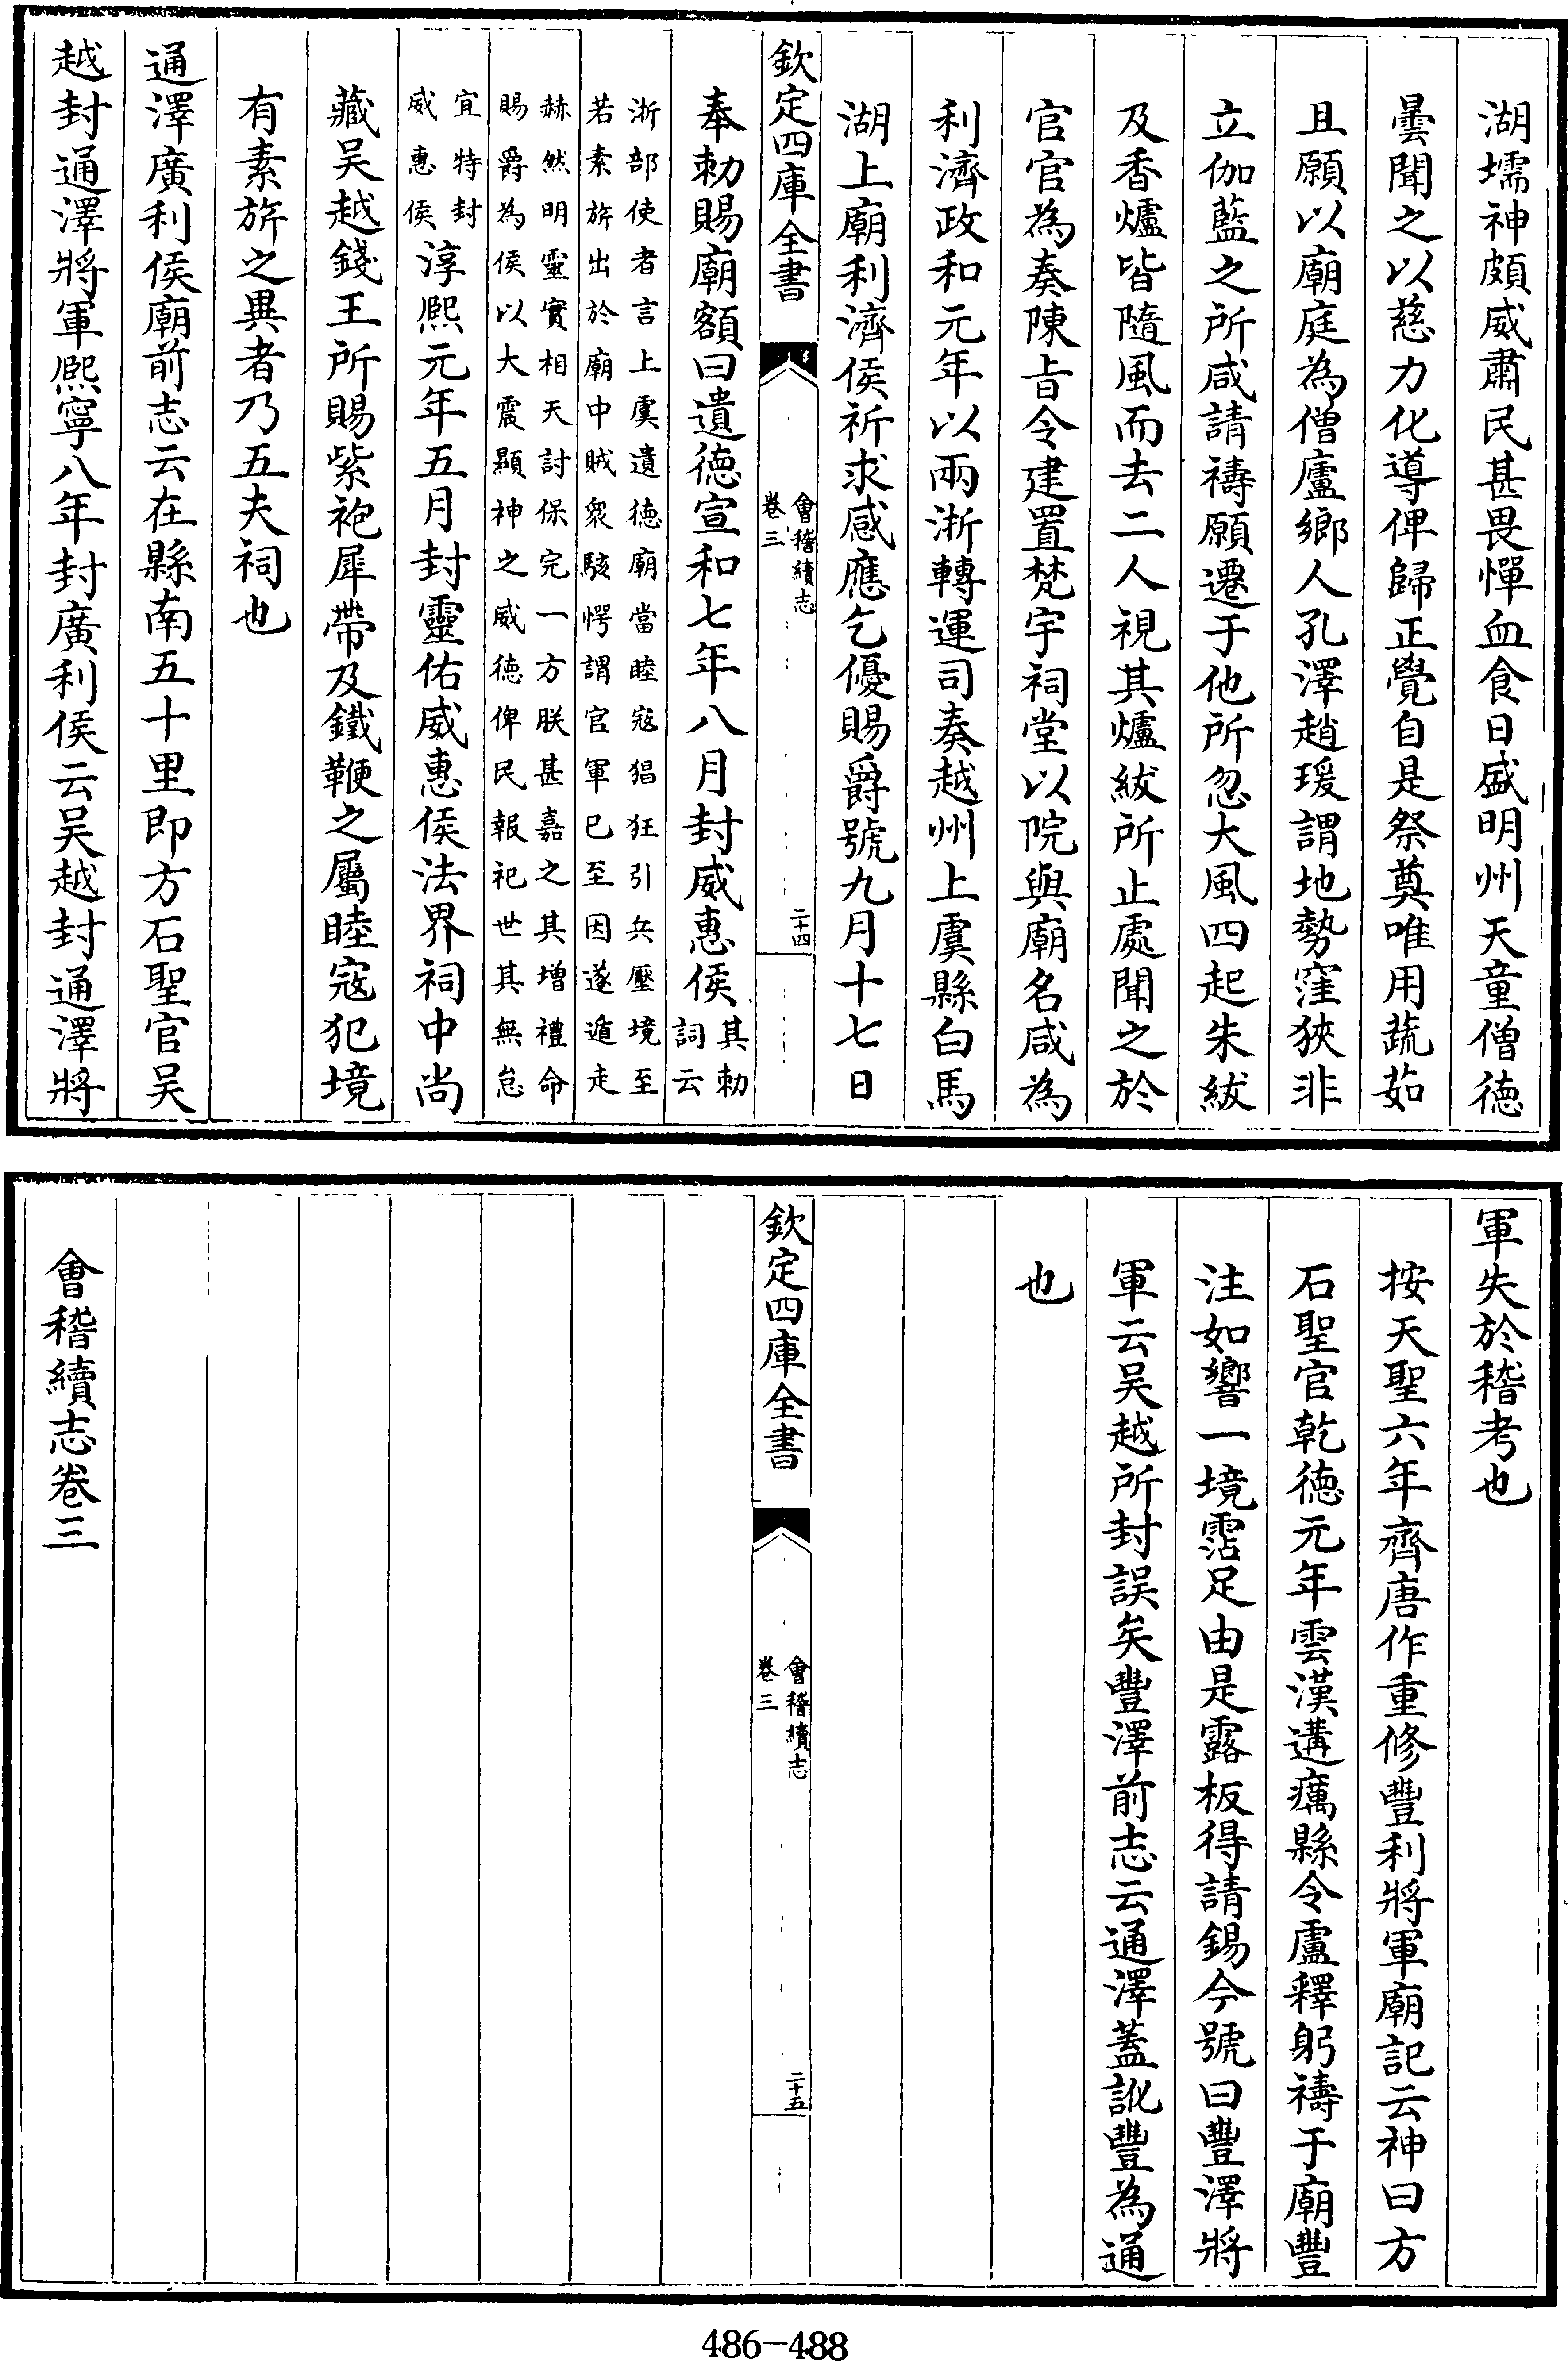 湖壖神頗威肅民甚畏憚血食日盛明州天童僧德
曇聞之以慈力化導俾歸正覺自是祭奠唯用蔬茹
且願以廟庭為僧廬鄉人孔澤趙瑗謂地勢窪狹非
立伽藍之所咸請禱願遷于他所忽大風四起朱紱
及香爐皆隨風而去二人視其爐紱所止處聞之於
官官為奏陳㫖令建置梵宇祠堂以院與廟名咸為
利濟政和元年以兩浙轉運司奏越州上虞縣白馬
湖上廟利濟侯祈求感應乞優賜爵號九月十七日
欽定四庫全書
會稽續志
卷三
二十四
奉勅賜廟額曰遺德宣和七年八月封威惠侯其勅
詞云
浙部使者言上虞遺德廟當睦寇猖狂引兵壓境至
若素旂出於廟中賊衆駭愕謂官軍已至因遂遁走
赫然明靈實相天討保完一方朕甚嘉之其增禮命
賜爵為侯以大震顯神之威德俾民報祀世其無怠
宜特封
威惠侯
淳熙元年五月封靈佑威惠侯法界祠中尚
藏吴越錢王所賜紫袍犀帶及鐵鞭之屬睦寇犯境
有素旂之異者乃五夫祠也
通澤廣利侯廟前志云在縣南五十里即方石聖官吴
越封通澤將軍熙寧八年封廣利侯云吴越封通澤將
軍失於稽考也
按天聖六年齊唐作重修豐利將軍廟記云神曰方
石聖官乾德元年雲漢遘癘縣令盧釋躬禱于廟豐
注如響一境霑足由是露板得請錫今號曰豐澤將
軍云吴越所封誤矣豐澤前志云通澤蓋訛豐為通
也
欽定四庫全書
會稽續志
卷三
二十五
會稽續志卷三
486-488